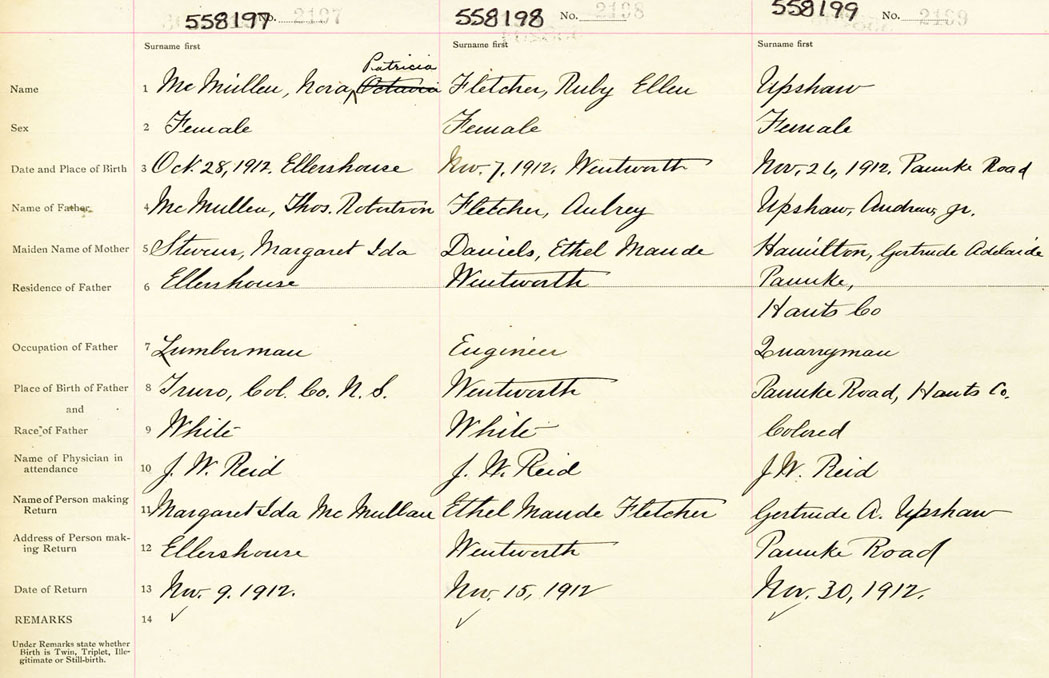 558197 No. 2197 558198 No. 2198 558199 No. 2199
Surname first Surname first Surname first
Patricia
Name 1 Mc Mullen, Nora Octavia Fletcher, Ruby Ellen Upshaw
Sex 2 Female Female Female
Date and Place of Birth 3 Oct. 28, 1912. Ellershouse Nov. 7, 1912. Wentworth Nov. 26, 1912. Panuke Road
Name of Father 4 Mc Mullen, Thos. Robertson Fletcher, Aubrey Upshaw, Andrew, jr.
Maiden Name of Mother 5 Stevens, Margaret Ida Daniels, Ethel Maude Hamilton, Gertrude Adelaide
Residence of Father 6 Ellershouse Wentworth Panuke,
Hants Co
Occupation of Father 7 Lumberman Engineer Quarryman
Place of Birth of Father 8 Truro, Col. Co. N. S. Wentworth Panuke Road, Hants Co.
and
Race of Father 9 White White Colored
Name of Physician in
attendance 10 J. W. Reid J. W. Reid J. W. Reid
Name of Person making
Return 11 Margaret Ida Mc Mullan Ethel Maude Fletcher Gertrude A. Upshaw
Address of Person mak-
ing Return 12 Ellershouse Wentworth Panuke Road
Date of Return 13 Nov. 9. 1912. Nov. 15, 1912 Nov. 30, 1912.
REMARKS 14 ✓ ✓ ✓
Under Remarks state whether
Birth is Twin, Triplet, Ille-
gitimate or Still-birth.